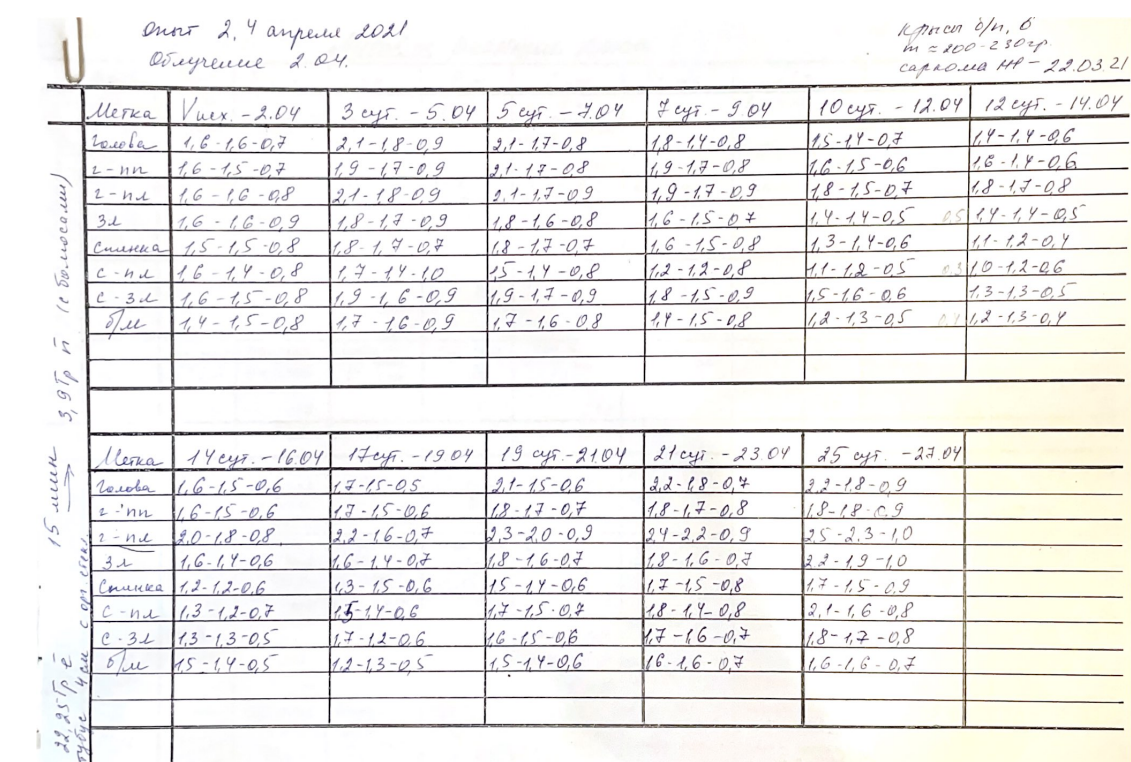 Опыт 2, 4 апреля 2021
Облучение 2.04.
Крысы б/п, б
m ≈ 200-230гр.
саркома М1 - 22.03.21
Метка Vисх. - 2.04 3 сут. - 5.04 5 сут. - 7.04 7 сут. - 9.04 10 сут. - 12.04 12 сут. - 14.04
голова 1,6-1,6-0,7 2,1-1,8-0,9 2,1-1,7-0,8 1,8-1,4-0,8 1,5-1,4-0,7 1,4-1,4-0,6
г-пп 1,6-1,5-0,7 1,9-1,7-0,9 2,1-1,7-0,8 1,9-1,7-0,8 1,6-1,5-0,6 1,6-1,4-0,6
г-пл 1,6-1,6-0,8 2,1-1,8-0,9 2,1-1,7-0,9 1,9-1,7-0,9 1,8-1,5-0,7 1,8-1,7-0,8
Зл 1,6-1,6-0,9 1,8-1,7-0,9 1,8-1,6-0,8 1,6-1,5-0,7 1,4-1,4-0,5 0,5 1,4-1,4-0,5
Спинка 1,5-1,5-0,8 1,8-1,7-0,7 1,8-1,7-0,7 1,6-1,5-0,8 1,3-1,4-0,6 1,1-1,2-0,4
с-пл 1,6-1,4-0,8 1,7-1,4-1,0 1,5-1,4-0,8 1,2-1,2-0,8 1,1-1,2-0,5 0,3 1,0-1,2-0,6
с-зл 1,6-1,5-0,8 1,9-1,6-0,9 1,9-1,7-0,9 1,8-1,5-0,9 1,5-1,6-0,6 1,3-1,3-0,5
б/м 1,4-1,5-0,8 1,7-1,6-0,9 1,7-1,6-0,8 1,4-1,5-0,8 1,2-1,3-0,5 1,2-1,3-0,4
Метка 14 сут. - 16.04 17 сут. - 19.04 19 сут. - 21.04 21 сут. - 23.04 25 сут. - 27.04
Голова 1,6-1,5-0,6 1,7-1,5-0,5 2,1-1,5-0,6 2,2-1,8-0,7 2,2-1,8-0,9
г-пп 1,6-1,5-0,6 1,7-1,5-0,6 1,8-1,7-0,7 1,8-1,7-0,8 1,8-1,8-0,9
г-пл 2,0-1,8-0,8 2,2-1,6-0,7 2,3-2,0-0,9 2,4-2,2-0,9 2,5-2,3-1,0
Зл 1,6-1,4-0,6 1,6-1,4-0,7 1,8-1,6-0,7 1,8-1,6-0,7 2,2-1,9-1,0
Спинка 1,2-1,2-0,6 1,3-1,5-0,6 1,5-1,4-0,6 1,7-1,5-0,8 1,7-1,5-0,9
с-пл 1,3-1,2-0,7 1,5-1,4-0,6 1,7-1,5-0,7 1,8-1,4-0,8 2,1-1,6-0,8
с-зл 1,3-1,3-0,5 1,7-1,2-0,6 1,6-1,5-0,6 1,7-1,6-0,7 1,8-1,7-0,8
б/м 1,5-1,4-0,5 1,2-1,3-0,5 1,5-1,4-0,6 1,6-1,6-0,7 1,6-1,6-0,7
15 мин → 3,9 Гр п (с болюсами)
22,25 Гр ē
тубус 4 см с орг. стекл.